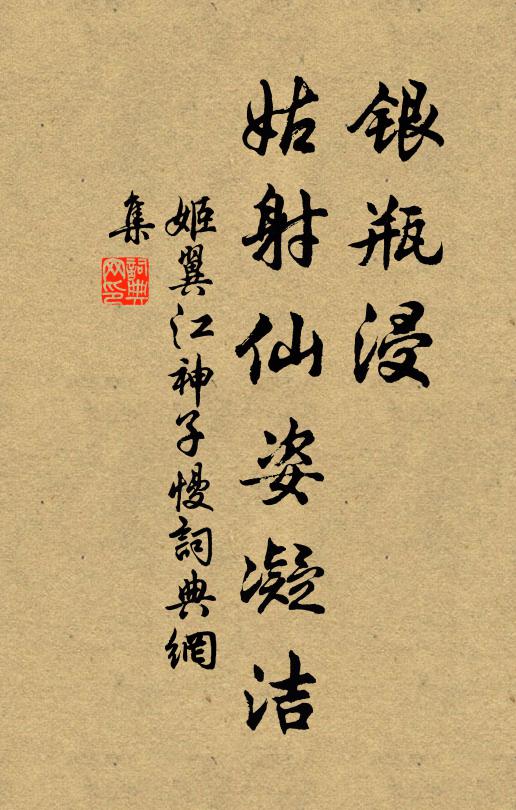 银瓶浸
姑射仙姿凝洁
姬翼江神子慢詞典網
集
詞典
网印